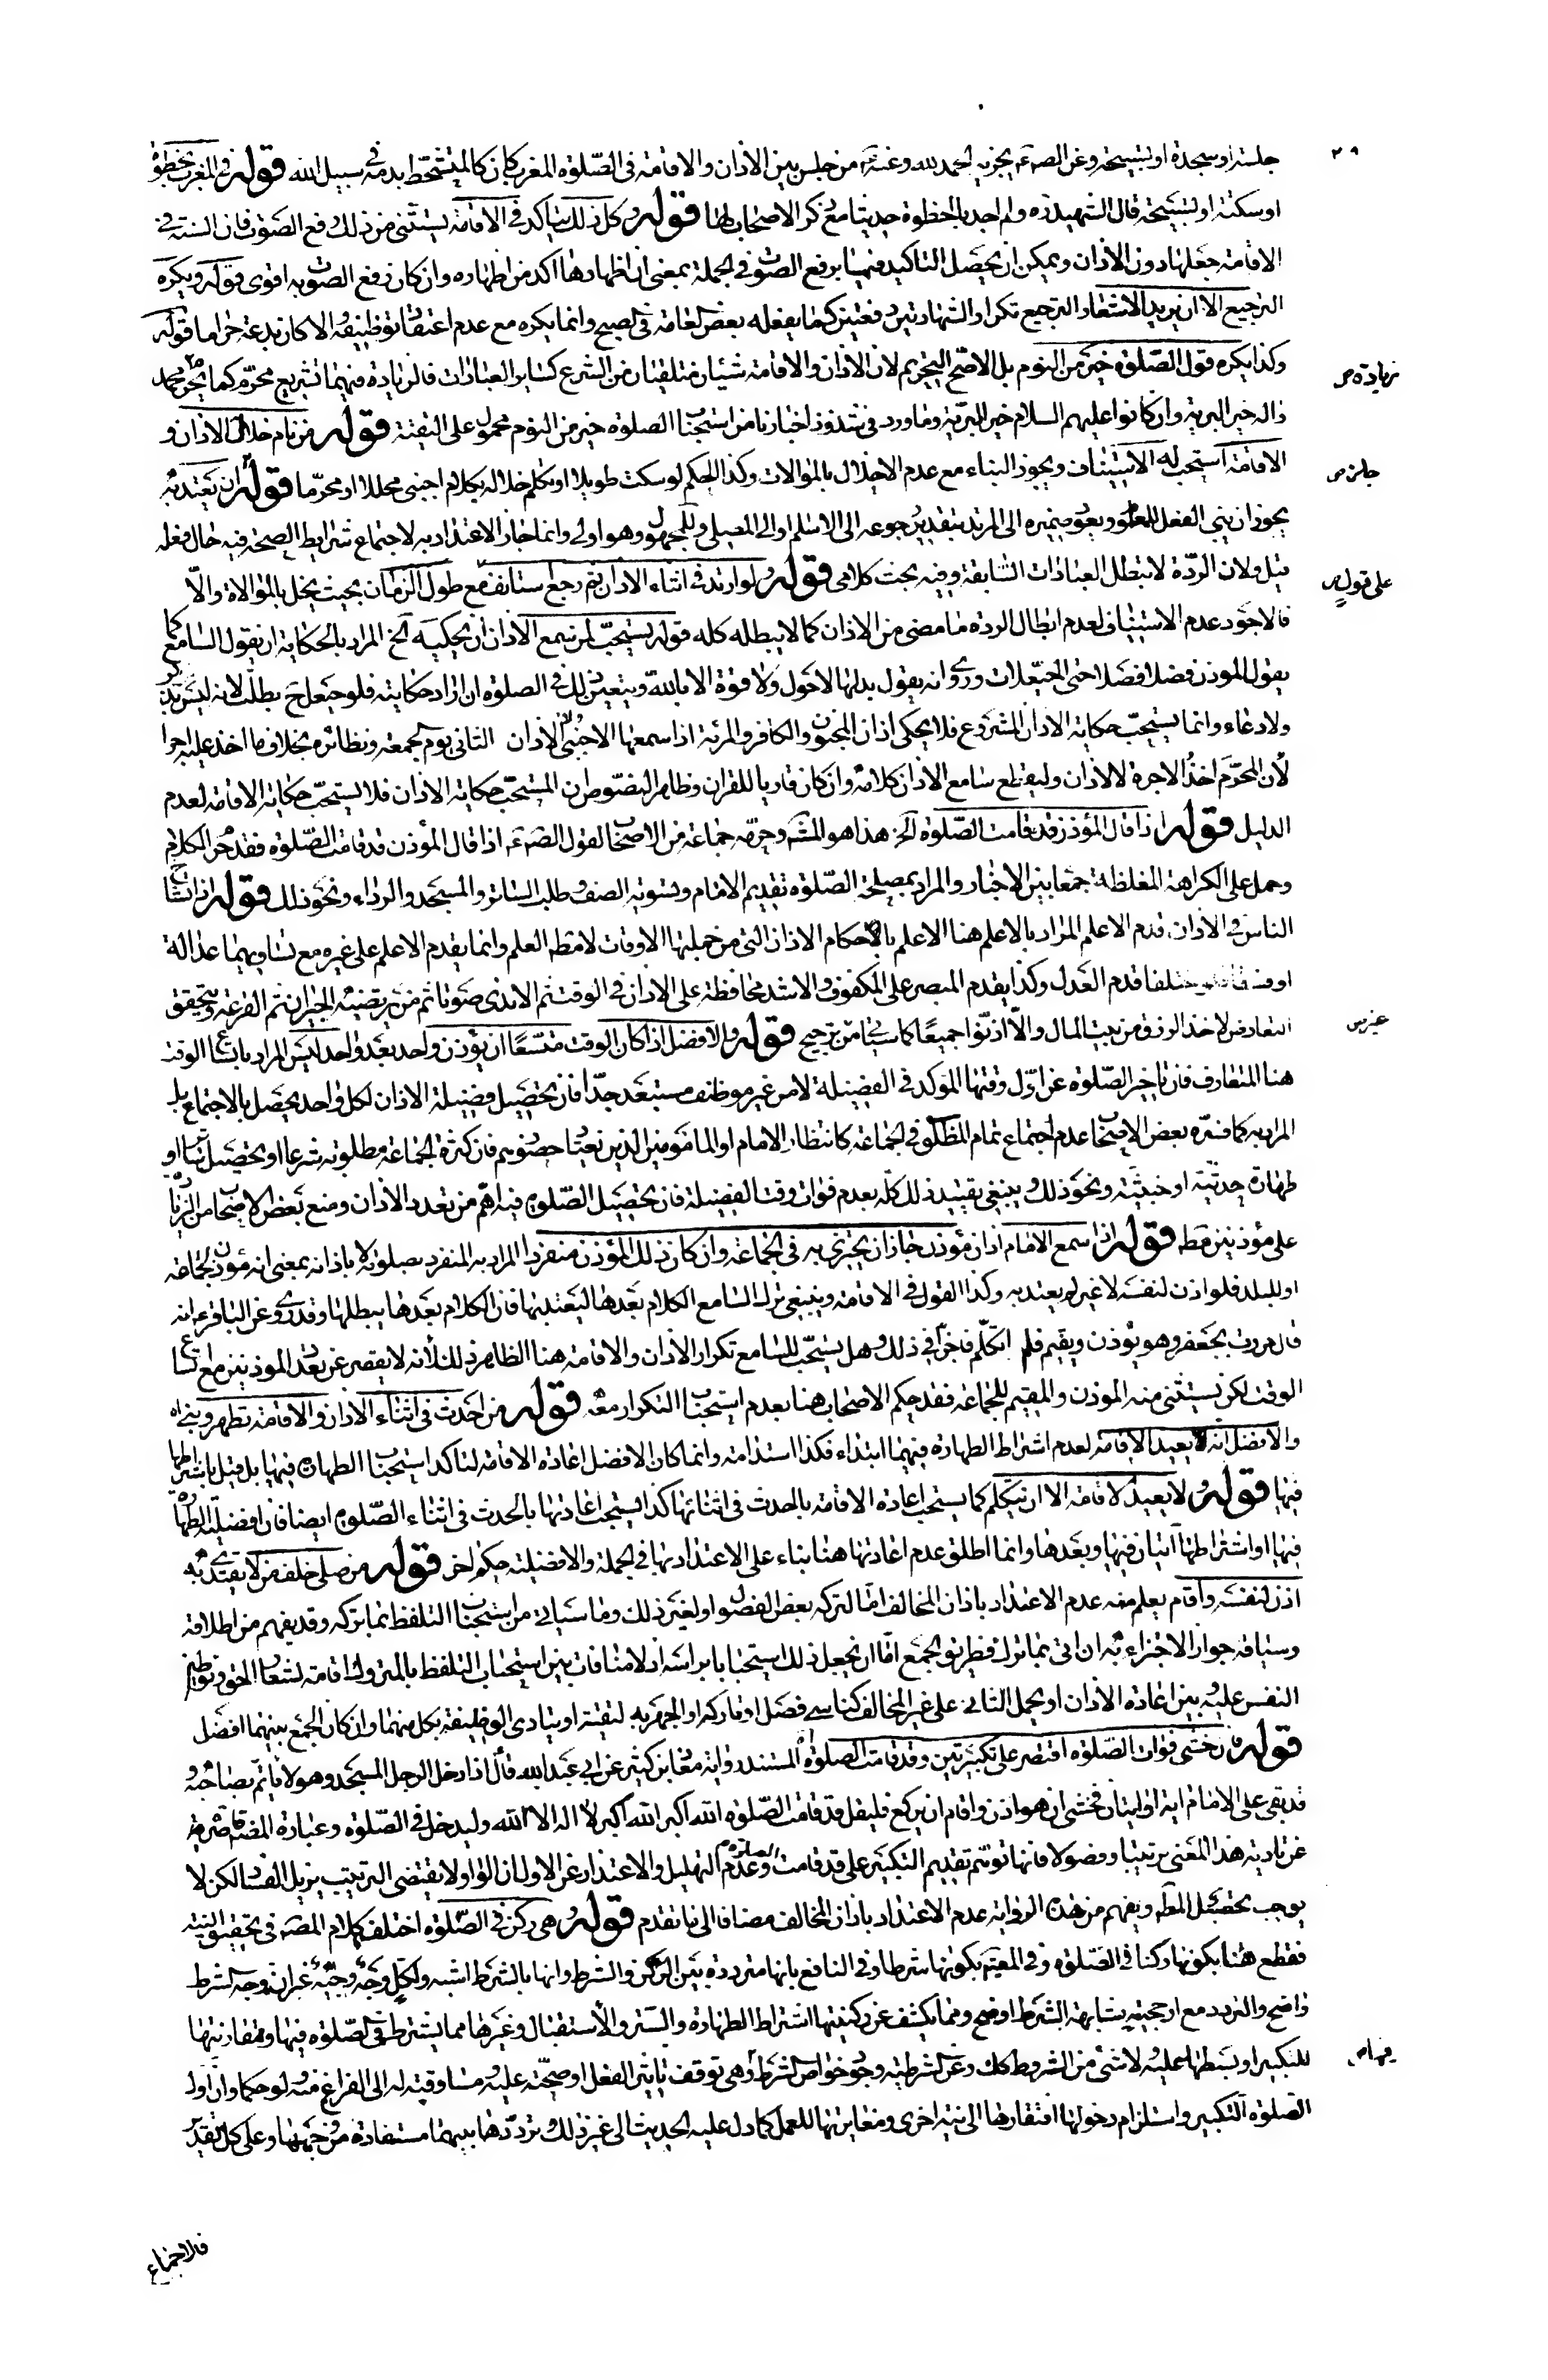 ٢٩
جلسة او سجدة او تسبيحة وعن الصم يجزيه الحمد لله وعنه من جلس بين الاذان والاقامة فى الصلوة المغرب كان كالمتشحط بدمه فى سبيل الله قوله وفى المغرب بخطوة
او سكتة او تسبيحة قال الشهيد ره ولم اجد بالخطوة حديثا مع ذكر الاصحاب لها قوله وكل ذلك يتاكد فى الاقامة يستثنى من ذلك رفع الصوت فان السنة فى
الاقامة جعلها دون الاذان ويمكن ان يحصل التاكيد فيها برفع الصوت فى الجملة بمعنى ان اظهارها اكد من اظهاره وان كان رفع الصوت به اقوى قوله ويكره
الترجيع الا ان يريد الاشعار الترجيع تكرار الشهادتين دفعتين كما يفعله بعض العامة فى الصبح وانما يكره مع عدم اعتقاد توظيفه والا كان بدعة حراما قوله
وكذا يكره قول الصلوة خير من النوم بل الاصح التحريم لان الاذان والاقامة شيئان متلقيان من الشرع كسائر العبادات فالزيادة فيهما تشريع محرم كما يحرم زيادة محمد
واله خير البرية وان كانوا عليهم السلام خير البرية وما ورد فى شذوذ اخبارنا من استحباب الصلوة خير من النوم محمول على التقية قوله من نام خلال الاذان و
الاقامة استحب له الاستيناف ويجوز البناء مع عدم الاخلال بالموالات وكذا الحكم لو سكت طويلا او تكلم خلاله بكلام اجنبى محللا او محرما قوله ان يعتد به
يجوز ان يبنى الفعل للمعلوم ويعود ضميره الى المرتد بتقدير رجوعه الى الاسلام او الى المصلى وللمجهول وهو اولى وانما جاز الاعتداد به لاجتماع شرايط الصحة فيه حال فعله
قيل ولان الردة لا تبطل العبادات السابقة وفيه بحث كلامى قوله ولو ارتد فى اثناء الاذان ثم رجع استانف مع طول الزمان بحيث يخل بالموالاة والا
فالاجود عدم الاستيناف لعدم ابطال الردة ما مضى من الاذان كما لا يبطله كله قوله يستحب لمن سمع الاذان ان يحكيه الخ المراد بالحكاية ان يقول السامع كما
يقول الموذن فصلا فصلا حتى الحيعلات وروى انه يقول بدلها لا حول ولا قوة الا بالله ويتعين ذلك فى الصلوة ان اراد حكايته فلو حيعل ح بطلت لانه ليس بذكر
ولا دعاء وانما يستحب حكاية الاذان المشروع فلا يحكى اذان المجنون والكافر والمرئة اذا سمعها الاجنبى والاذان الثانى يوم الجمعة ونظائره بخلاف ما اخذ عليه اجرا
لان المحرم اخذ الاجرة لا الاذان وليقطع سامع الاذان كلامه وان كان قاريا للقران وظاهر النصوص ان المستحب حكاية الاذان فلا يستحب حكاية الاقامة لعدم
الدليل قوله اذا قال المؤذن قد قامت الصلوة الخ هذا هو المشهور وحرمه جماعة من الاصحاب لقول الصم اذا قال المؤذن قد قامت الصلوة فقد حرم الكلام
وحمل على الكراهة المغلظة جمعا بين الاخبار والمراد بمصلحة الصلوة تقديم الامام وتسوية الصف وطلب الساتر والمسجد والرداء ونحو ذلك قوله اذا تشاح
الناس فى الاذان قدم الاعلم المراد بالاعلم هنا الاعلم باحكام الاذان التى من جملتها الاوقات لا مطلق العلم وانما يقدم الاعلم على غيره مع تساويهما عدالة
او فسقا فلو اختلفا قدم العدل وكذا يقدم المبصر على المكفوف والاشد محافظة على الاذان فى الوقت ثم الاندى صوتا ثم من يرتضيه الجيران ثم القرعة ويتحقق
التعارض لاخذ الرزق من بيت المال والا اذنوا جميعا كما سياتى من غير ترجيح قوله والافضل اذا كان الوقت متسعا ان يؤذن واحد بعد واحد ليس المراد باتساع الوقت
هنا المتعارف فان تاخير الصلوة عن اول وقتها المؤكد فى الفضيلة لامر غير موظف مستبعد جدا فان تحصيل فضيلة الاذان لكل واحد يحصل بالاجتماع بل
المراد به كما فسره بعض الاصحاب عدم اجتماع تمام المطلوب فى الجماعة كانتظار الامام او المامومين الذين يعتاد حضورهم فان كثرة الجماعة مطلوبة شرعا او تحصيل ساتر او
طهارة حدثية او خبثية ونحو ذلك وينبغى تقييد ذلك كله بعدم فوات وقت الفضيلة فان تحصيل الصلوة فيه اهم من تعدد الاذان ومنع بعض الاصحاب من الزيادة
على مؤذنين قط قوله اذا سمع الامام اذان مؤذن جاز ان يجتزى به فى الجماعة وان كان ذلك المؤذن منفردا المراد به المنفرد بصلوته لا باذانه بمعنى انه مؤذن لجماعة
او للبلد فلو اذن لنفسه لا غير لم يعتد به وكذا القول فى الاقامة وينبغى ترك السامع الكلام بعدها ليعتد بها فان الكلام بعدها يبطلها وقد روى عن الباقر ع انه
قال مررت بجعفر وهو يؤذن ويقيم فلم اتكلم فاجزأنى ذلك وهل يستحب للسامع تكرار الاذان والاقامة هنا الظاهر ذلك لانه لا يقصر عن تعدد الموذنين مع اتساع
الوقت لكن يستثنى منه الموذن والمقيم للجماعة فقد حكم الاصحاب هنا بعدم استحباب التكرار معه قوله من احدث فى اثناء الاذان والاقامة تطهر وبنى اه
والافضل انه يعيد الاقامة لعدم اشتراط الطهارة فيهما ابتداء فكذا استدامة وانما كان الافضل اعادة الاقامة لتاكد استحباب الطهارة فيها بل قيل باشتراطها
فيها قوله ولا يعيد الاقامة الا ان يتكلم كما يستحب اعادة الاقامة بالحدث فى اثنائها كذا يستحب اعادتها بالحدث فى اثناء الصلوة ايضا فان افضلية الطهارة
فيها او اشتراطها آتيان فيها وبعدها وانما اطلق عدم اعادتها هنا بناء على الاعتداد بها فى الجملة والافضلية حكم اخر قوله من صلى خلف من لا يقتدى به
اذن لنفسه واقام يعلم منه عدم الاعتداد باذان المخالف اما لتركه بعض الفصول او لغير ذلك وما سياتى من استحباب التلفظ بما تركه وقد يفهم من اطلاقه
وسياقه جواز الاجتزاء به ان اتى بما ترك فطريق الجمع اما ان يجعل ذلك استحبابا براسه اذ لا منافات بين استحباب التلفظ بالمتروك اقامة لشعار الحق وتوطين
النفس عليه وبين اعادة الاذان او يحمل الثانى على غير المخالف كناسى فصل او تاركه او الجهر به لتقية او يتادى الوظيفة بكل منهما وان كان الجمع بينهما افضل
قوله فان خشى فوات الصلوة اقتصر على تكبيرتين وقد قامت الصلوة المستند رواية معاذ بن كثير عن ابى عبد الله قال اذا دخل الرجل المسجد وهو لا ياتم بصاحبه و
قد بقى على الامام اية او ايتان فخشى ان هو اذن واقام ان يركع فليقل قد قامت الصلوة الله اكبر الله اكبر لا اله الا الله وليدخل فى الصلوة وعبارة المصنف قاصرة
عن تادية هذا المعنى ترتيبا وفصولا فانها توهم تقديم التكبير على قد قامت الصلوة وعدم التهليل والاعتذار عن الاول بان الواو لا يقتضى الترتيب يزيل الفساد لكن لا
يوجب تحصيل المط ويفهم من هذه الرواية عدم الاعتداد باذان المخالف مضافا الى ما تقدم قوله وهى ركن فى الصلوة اختلف كلام المصه فى تحقيق النية
فقطع هنا بكونها ركنا فى الصلوة وفى المعتبر بكونها شرطا وفى النافع بانها مترددة بين الركن والشرط وانها بالشرط اشبه ولكل وجه وجيه غير ان وجه الشرط
واضح والتردد مع ارجحية مشابهة الشرط اوضح ومما يكشف عن ركنيتها اشتراط الطهارة والستر والاستقبال وغيرها مما يشترط فى الصلوة فيها ومقارنتها
للتكبير او بسطها عليه ولا شئ من الشروط كذلك وعن الشرطية وجود خواص الشرط وهى توقف تاثير الفعل او صحته عليه ومساوقته له الى الفراغ منه ولو حكما وان اول
الصلوة التكبير واستلزام دخولها افتقارها الى نية اخرى ومغايرتها للعمل كما دل عليه الحديث الى غير ذلك وترددها بينهما مستفادة من وجهيها وعلى كل تقدير
زيادة ص
جلز ص
على قول ص
غير ص
فيها ص
فالاجماع